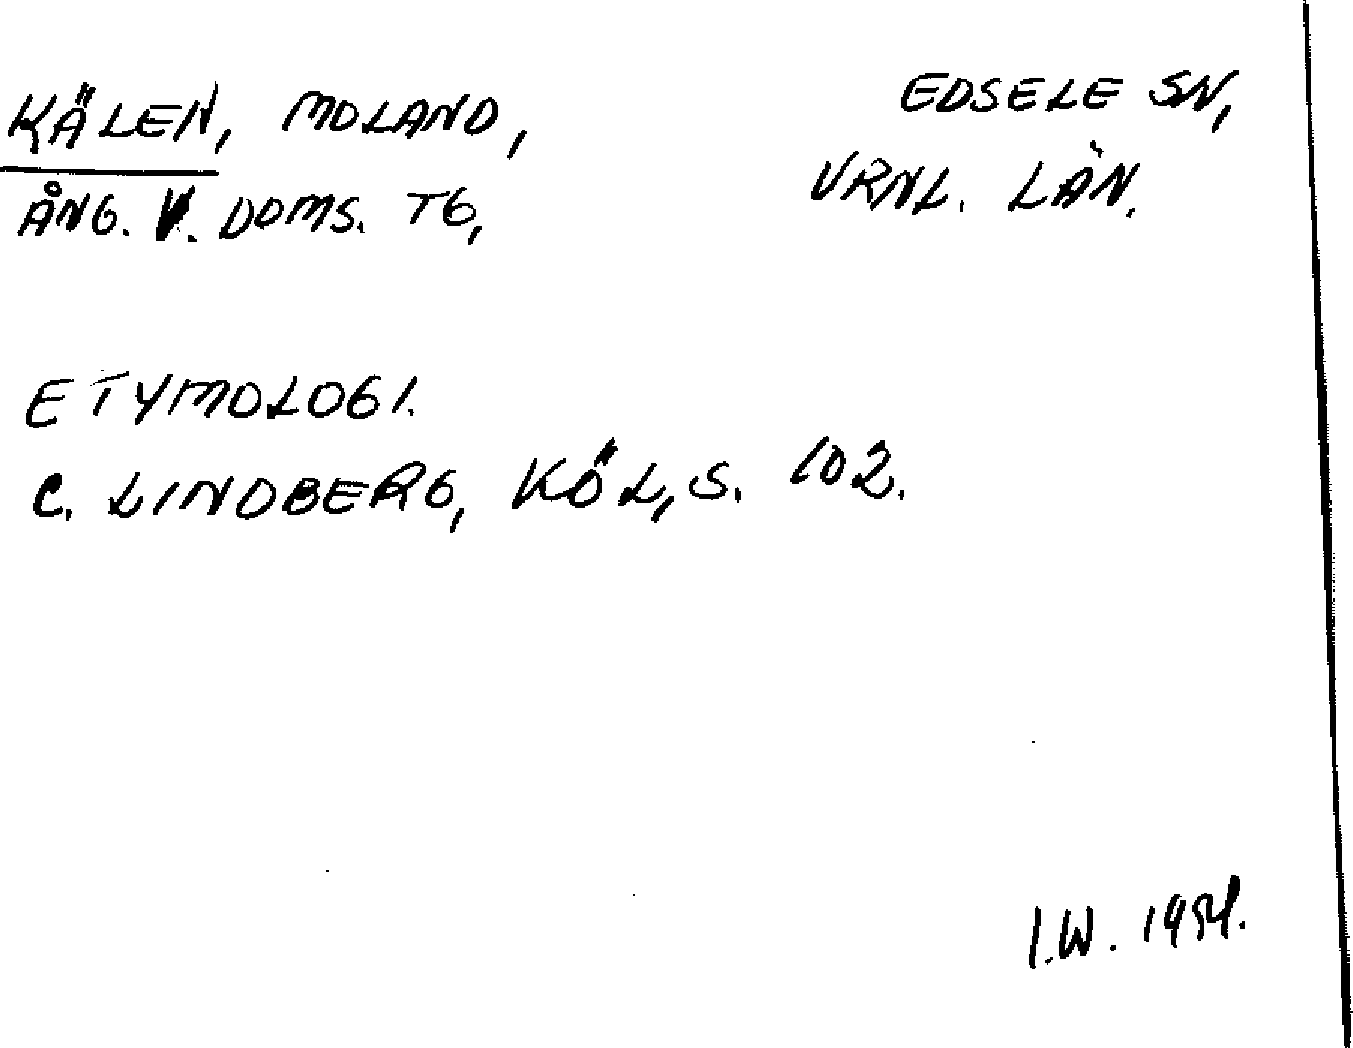 KÄLEN, MOLAND,
ÅNG. V. DOMS. TG,
EDSELE SN,
VRNL. LÄN.
ETYMOLOGI.
C. LINDBERG, KÖL, S. 102.
I.W. 1954.